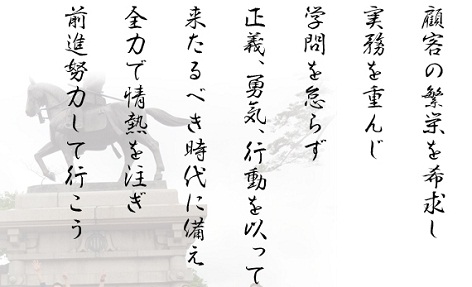 顧客の繁栄を希求し
実務を重んじ
学問を怠らず
正義、勇気、行動を以って
来たるべき時代に備え
全力で情熱を注ぎ
前進努力して行こう